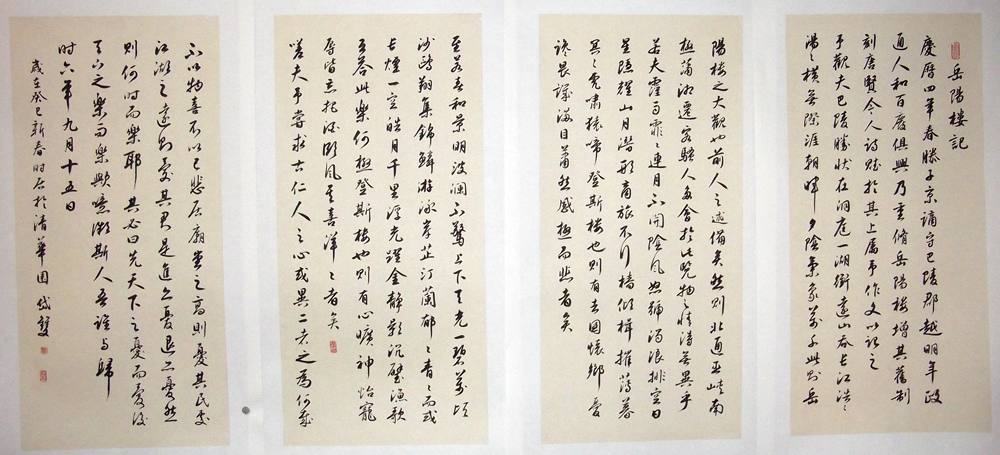 岳陽楼記
慶曆四年春滕子京謫守巴陵郡越明年政
通人和百廢俱興乃重脩岳陽樓增其舊制
刻唐賢今人詩賦於其上屬予作文以記之
予觀夫巴陵勝狀在洞庭一湖銜遠山吞長江浩々
湯々橫無際涯朝暉夕陰氣象萬千此則岳
陽樓之大觀也前人之述備矣然則北通巫峽南
極瀟湘遷客騷人多會於此覽物之情得無異乎
若夫霪雨霏々連月不開陰風怒號濁浪排空日
星隱耀山岳潛形商旅不行檣傾楫摧薄暮
冥々虎嘯猿啼登斯樓也則有去國懷鄉憂
讒畏譏滿目蕭然感極而悲者矣
至若春和景明波瀾不驚上下天光一碧萬頃
沙鷗翔集錦鱗游泳岸芷汀蘭郁々青々而或
長煙一空皓月千里浮光躍金靜影沉璧漁歌
互答此樂何極登斯樓也則有心曠神怡寵
辱皆忘把酒臨風其喜洋々者矣
嗟夫予嘗求古仁人之心或異二者之為何哉
不以物喜不以己悲居廟堂之高則憂其民處
江湖之遠則憂其君是進亦憂退亦憂然
則何时而樂耶其必曰先天下之憂而憂後
天下之樂而樂歟噫微斯人吾誰與歸
时六年九月十五日
歲在癸巳新春时居於清華園